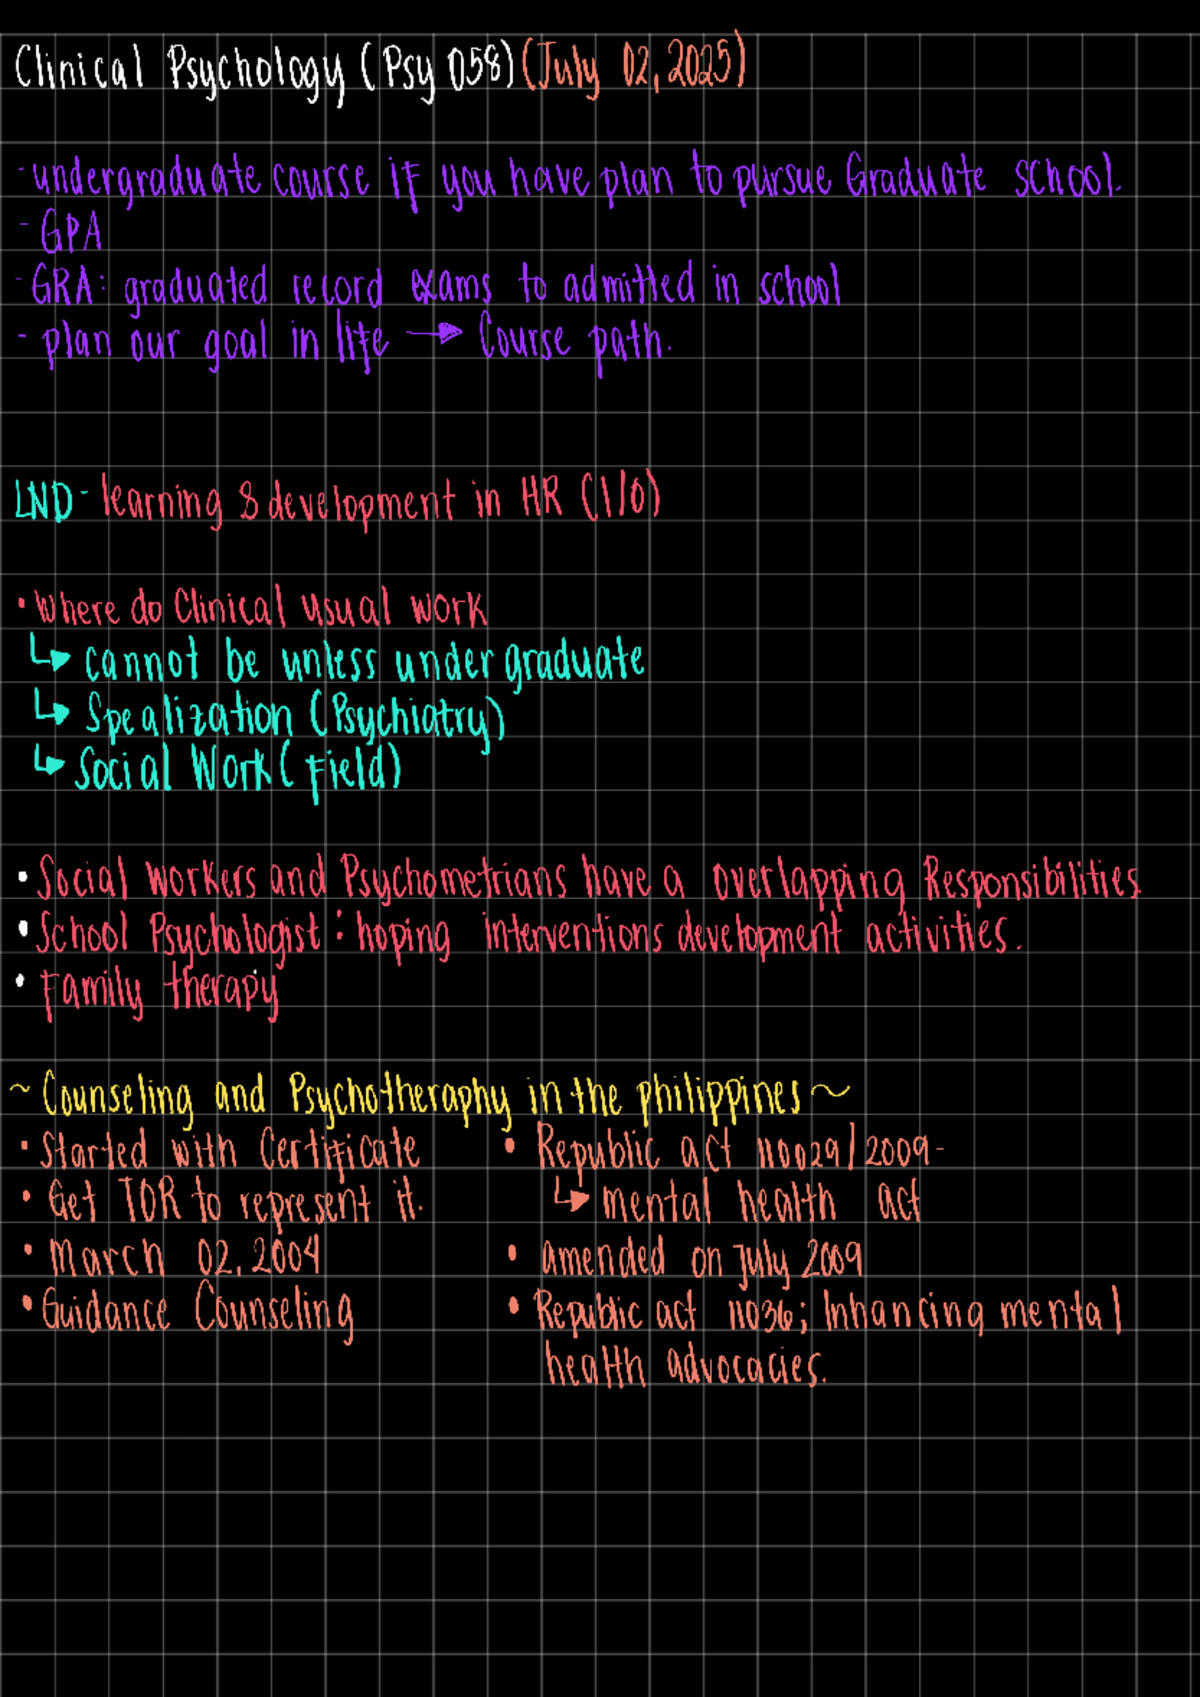 Clinical Psychology (Psy 058) (July 02, 2025)
- undergraduate course if you have plan to pursue Graduate school.
- GPA
- GRA: graduated record exams to admitted in school
- plan our goal in life → Course path.
LND - learning & development in HR (1/0)
• Where do Clinical usual work
↳ cannot be unless undergraduate
↳ Spealization (Psychiatry)
↳ Social Work (Field)
• Social workers and Psychometrians have a overlapping Responsibilities.
• School Psychologist : hoping interventions development activities.
• Family therapy
~ Counseling and Psychotheraphy in the philippines ~
• Started with Certificate
• Get TOR to represent it.
• March 02, 2004
• Guidance Counseling
• Republic act no029/2009-
↳ mental health act
• amended on july 2009
• Republic act 11036; Inhancing mental
health advocacies.